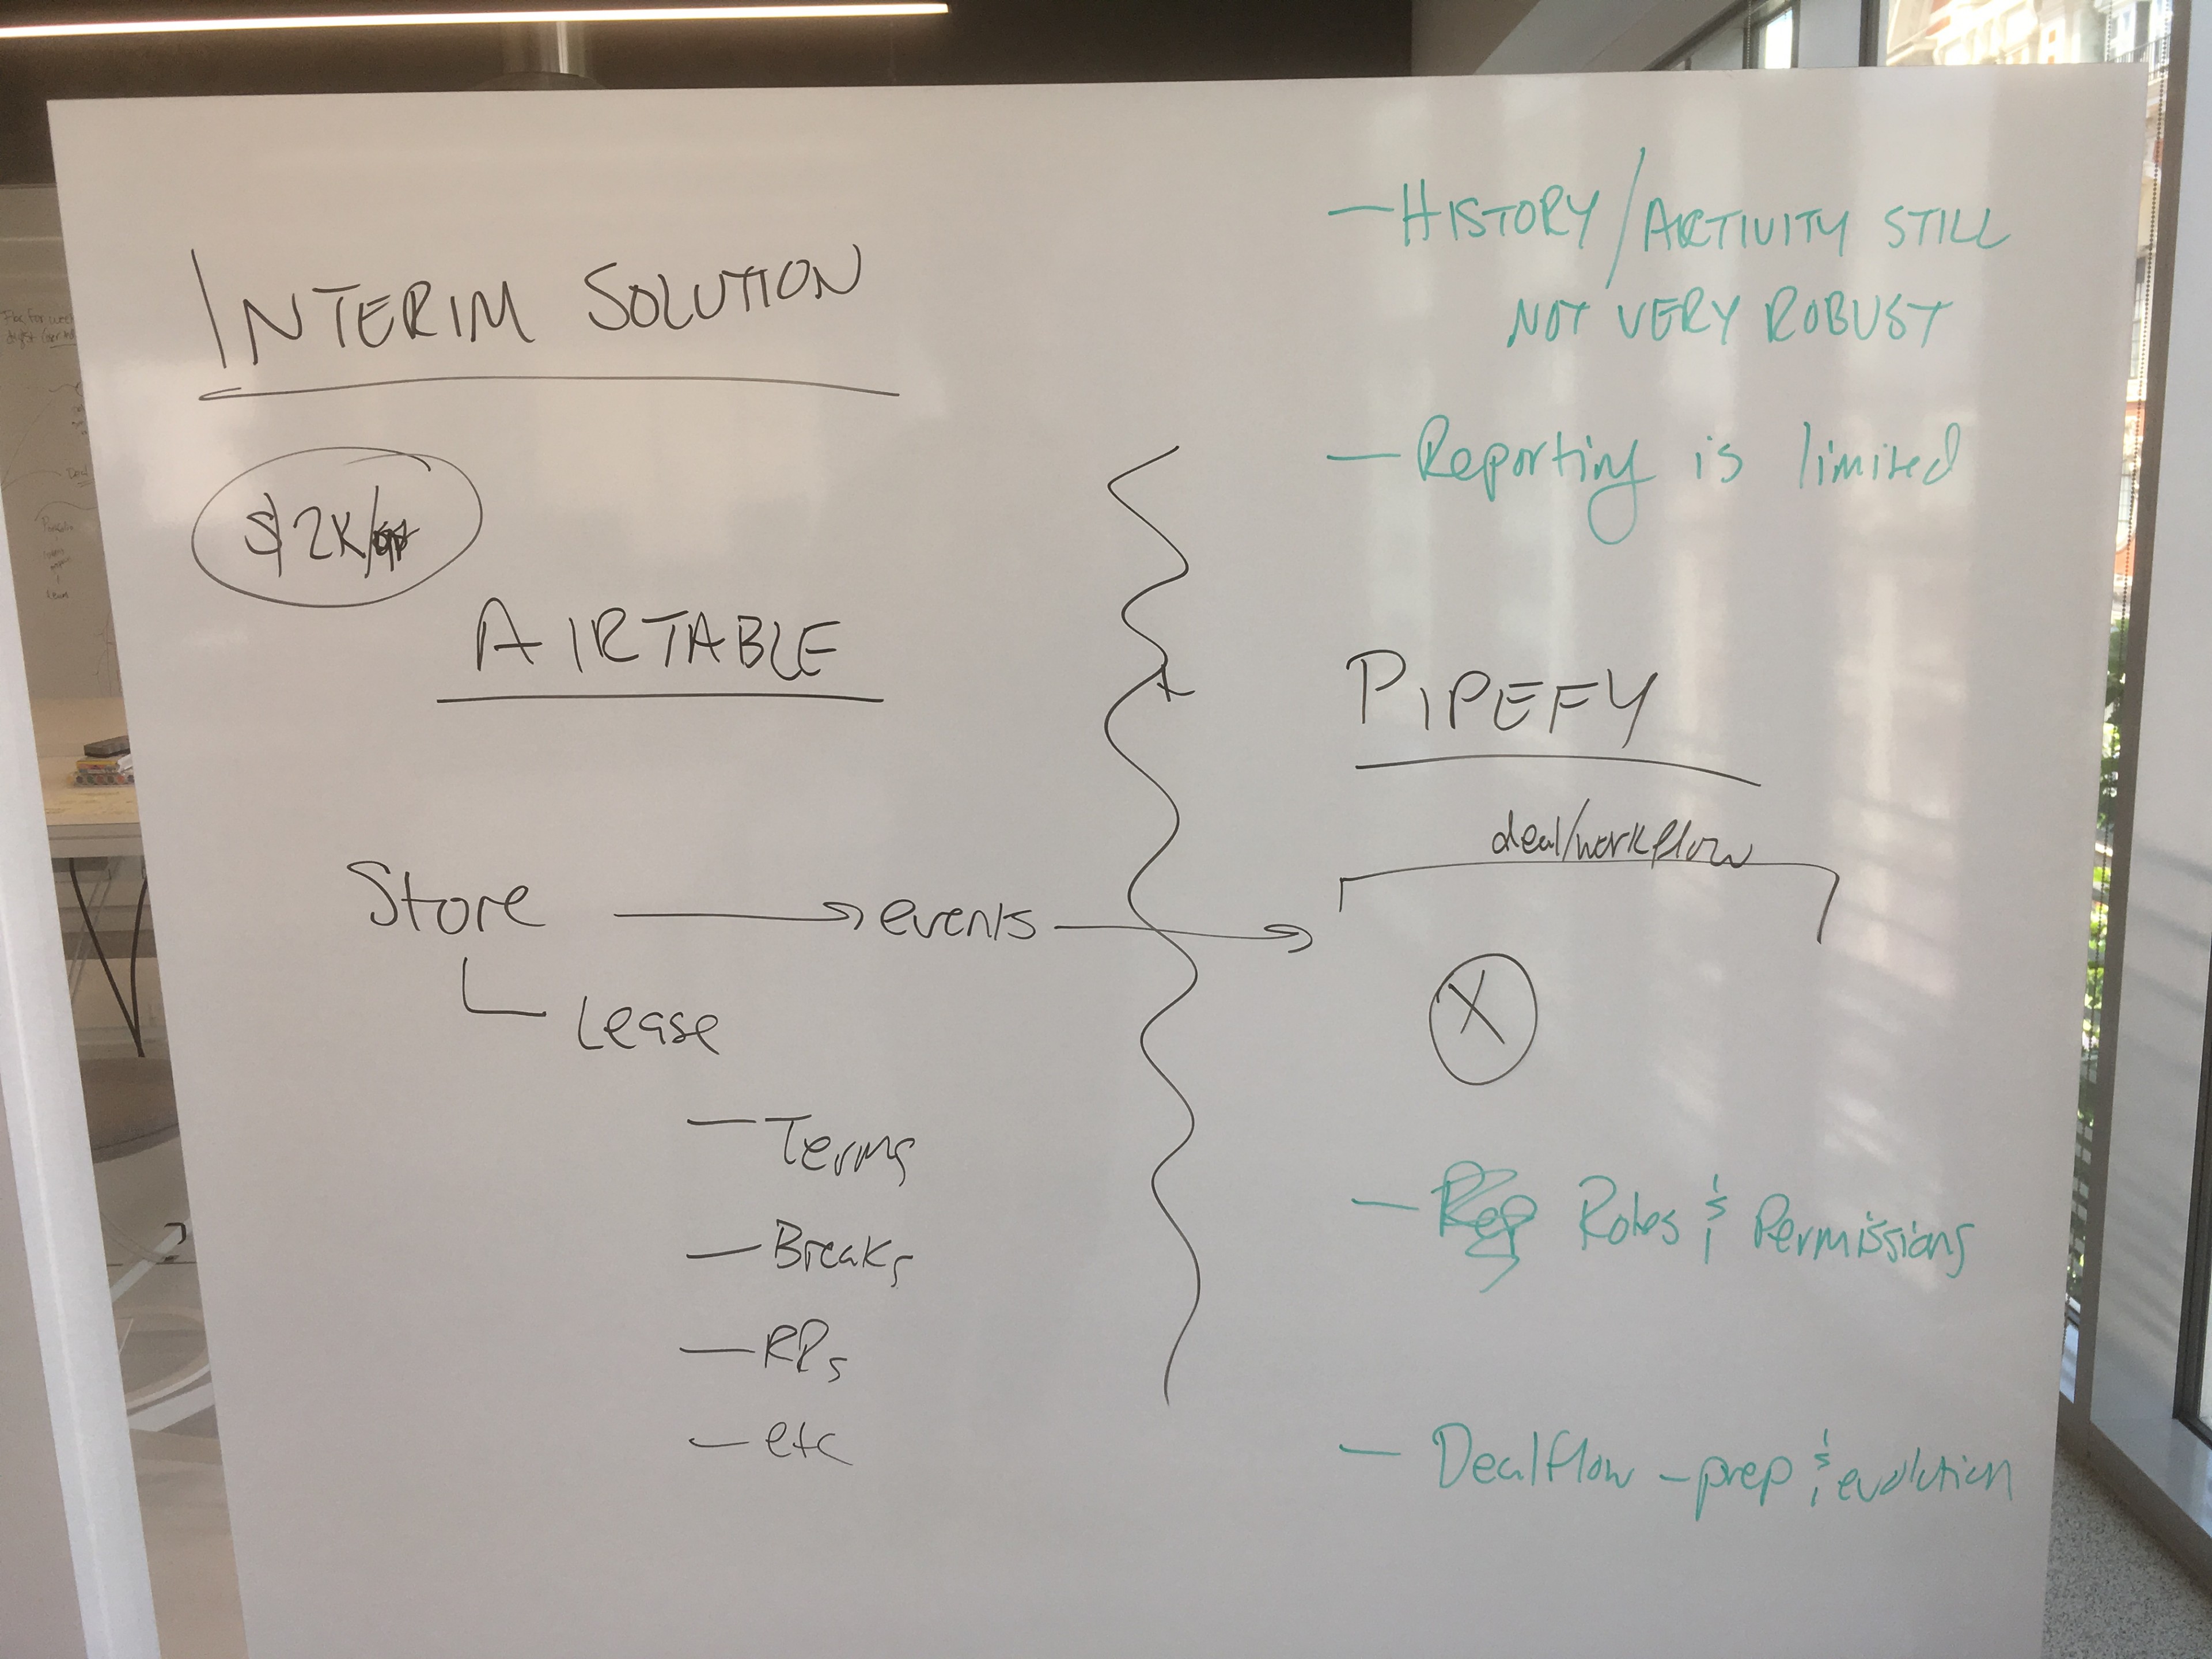 INTERIM SOLUTION
$2K/
AIRTABLE
Store → events →
Lease
— Terms
— Breaks
— RPs
— etc
— HISTORY/ACTIVITY STILL
NOT VERY ROBUST
— Reporting is limited
PIPEFY
deal/workflow
X
— Roles & Permissions
— Dealflow – prep & evolution